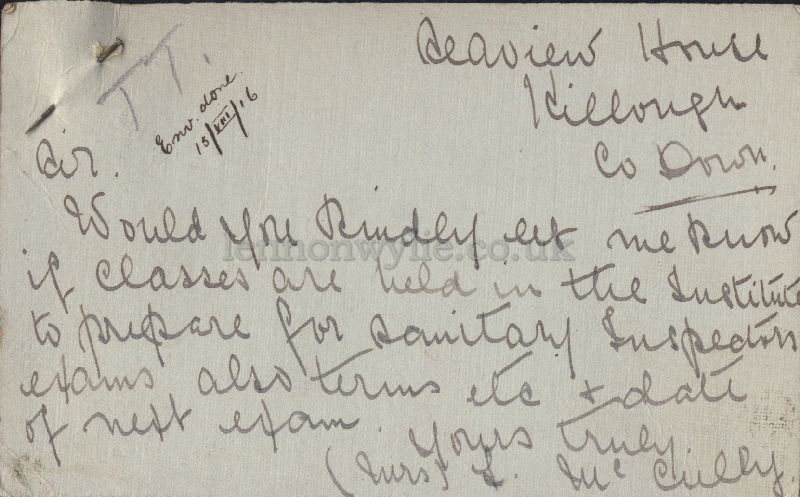 Seaview House
Killough
Co Down.
T T.
Env. done.
15/VIII/16
Sir.
Would you kindly let me know
if classes are held in the Institute
to prepare for Sanitary Inspectors
exams also terms etc & date
of next exam.
Yours truly
(Mrs) L. Mc Cully.
lennonwylie.co.uk